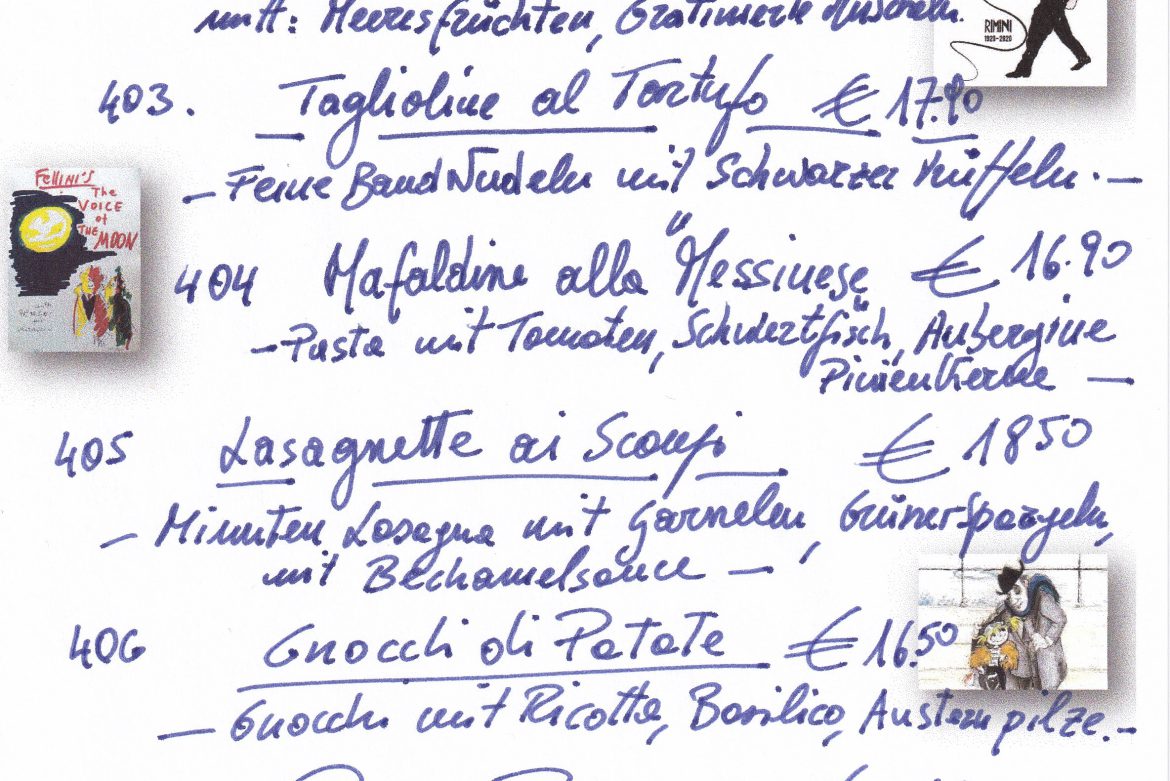 mit: Meeresfrüchten, Gratinierte Muscheln.
RIMINI
1920-2020
403. Tagliolini al Tartufo € 17.90
– Feine BandNudeln mit Schwarzer Trüffeln. –
FELLINI'S
The
VOICE
of
THE MOON
404 Mafaldine alla "Messinese" € 16.90
– Pasta mit Tomaten, Schwertfisch, Aubergine
Pinienkerne –
405 Lasagnette ai Scampi € 1850
– Minuten Lasagna mit Garnelen, Grüner Spargeln,
mit Bechamelsauce –
406 Gnocchi di Patate € 16.50
– Gnocchi mit Ricotta, Basilico, Austernpilze. –